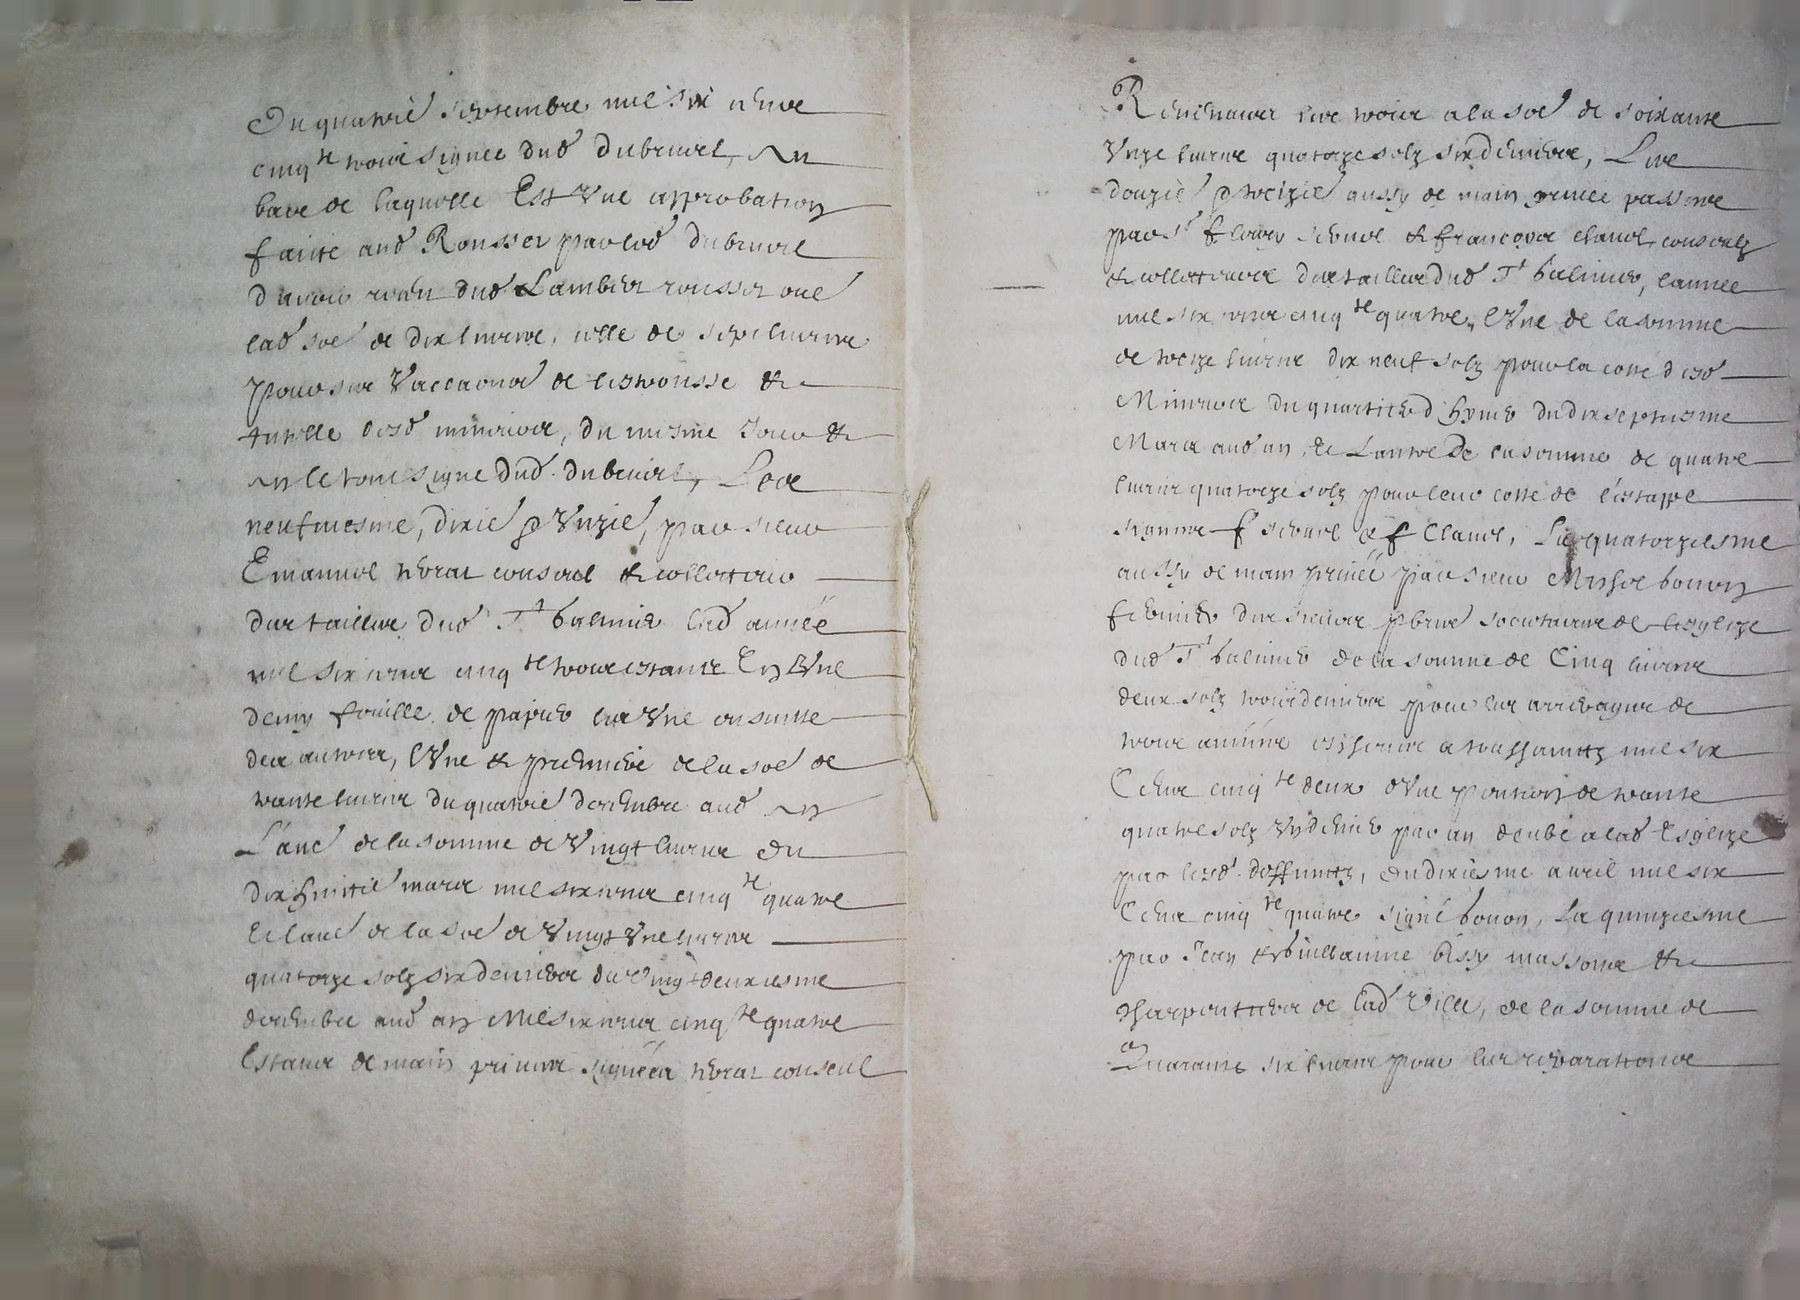 Du quatrie septembre mil six cens
cinq te trois signee dud dubrueil, en
bas de laquelle Est Une approbation
faitte aud Rousset par led dubrueil
davoir receu dud Lambert rousset oul
lad soe de dix livres, celle de sept livres
pour ses Vaccaons de
tutelle desd mineurs, du mesme jour &
en le tout signe dud dubrueil, Les
neufviesme, dixie & Unzie, par sieur
Emanuel consul & collecteur
des tailles dud St galmier lad année
mil six cens cinq te trois estants En Une
demy feuille de papier les Une ensuitte
des autres, lUne & premiere de la soe de
trante livres du quatrie decembre aud an
Lautre de la somme de Vingt livres du
dix huitie mars mil six cens cinq te quatre
Et lautre de la soe de Vingt Une livres
quatorze solz six deniers du Vingt deuxiesme
decembre aud an Mil six cens cinq te quatre
Estans de main privee signées consul
Revenants les trois a la soe de soixante
Unze livres quatorze solz six deniers, Les
douzie & treizie aussy de main privee passees
par sr fleury & francoys claude consulz
& collecteurs des tailles dud St galmier, lannee
mil six cens cinq te quatre, lUne de la somme
de treize livres dix neuf solz pour la cotte desd
Mineurs du quartier dhyver du dix septiesme
Mars aud an, & Lautre de la somme de quatre
livres quatorze solz pour leur cotte de lestappe
signees f & f Claude, La quatorziesme
aussy de main privée par sieur Michel bouon
fermier des sieurs pbres societaires de lesglize
dud St galmier de la somme de Cinq livres
deux solz trois deniers pour les arrerages de
trois années escheues a toussainctz mil six
Cens cinq te deux dUne pention de trante
quatre solz Un denier par an deube a lad Esglize
par lesd deffunctz, du dixiesme avril mil six
Cens cinq te quatre signé bouon, La quinziesme
par Jean & Guillaume bissy massons &
charpentiers de lad Ville, de la somme de
Quarante six livres pour les reparations